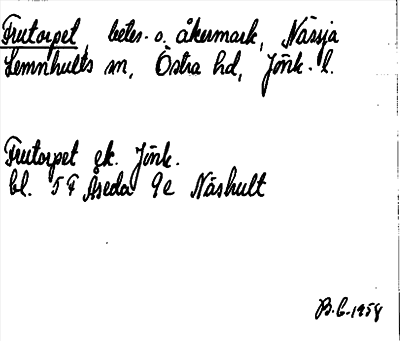 Frutorpet, betes- o. åkermark, Nässja
Lemnhults sn, Östra hd, Jönk. l.
Frutorpet ek. Jönk.
bl. 5F Åseda 9e Näshult
B.C. 1958